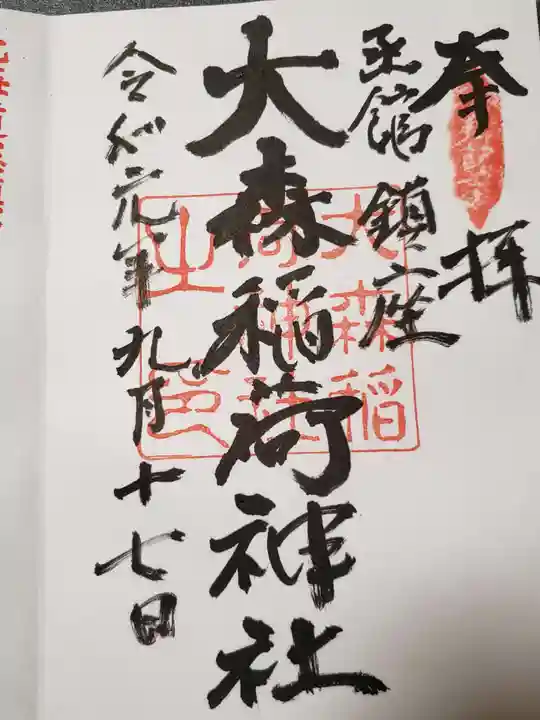 奉拝
函館 鎮座
大森稲荷神社
令和元年九月十七日
大森稲
荷神社
之印